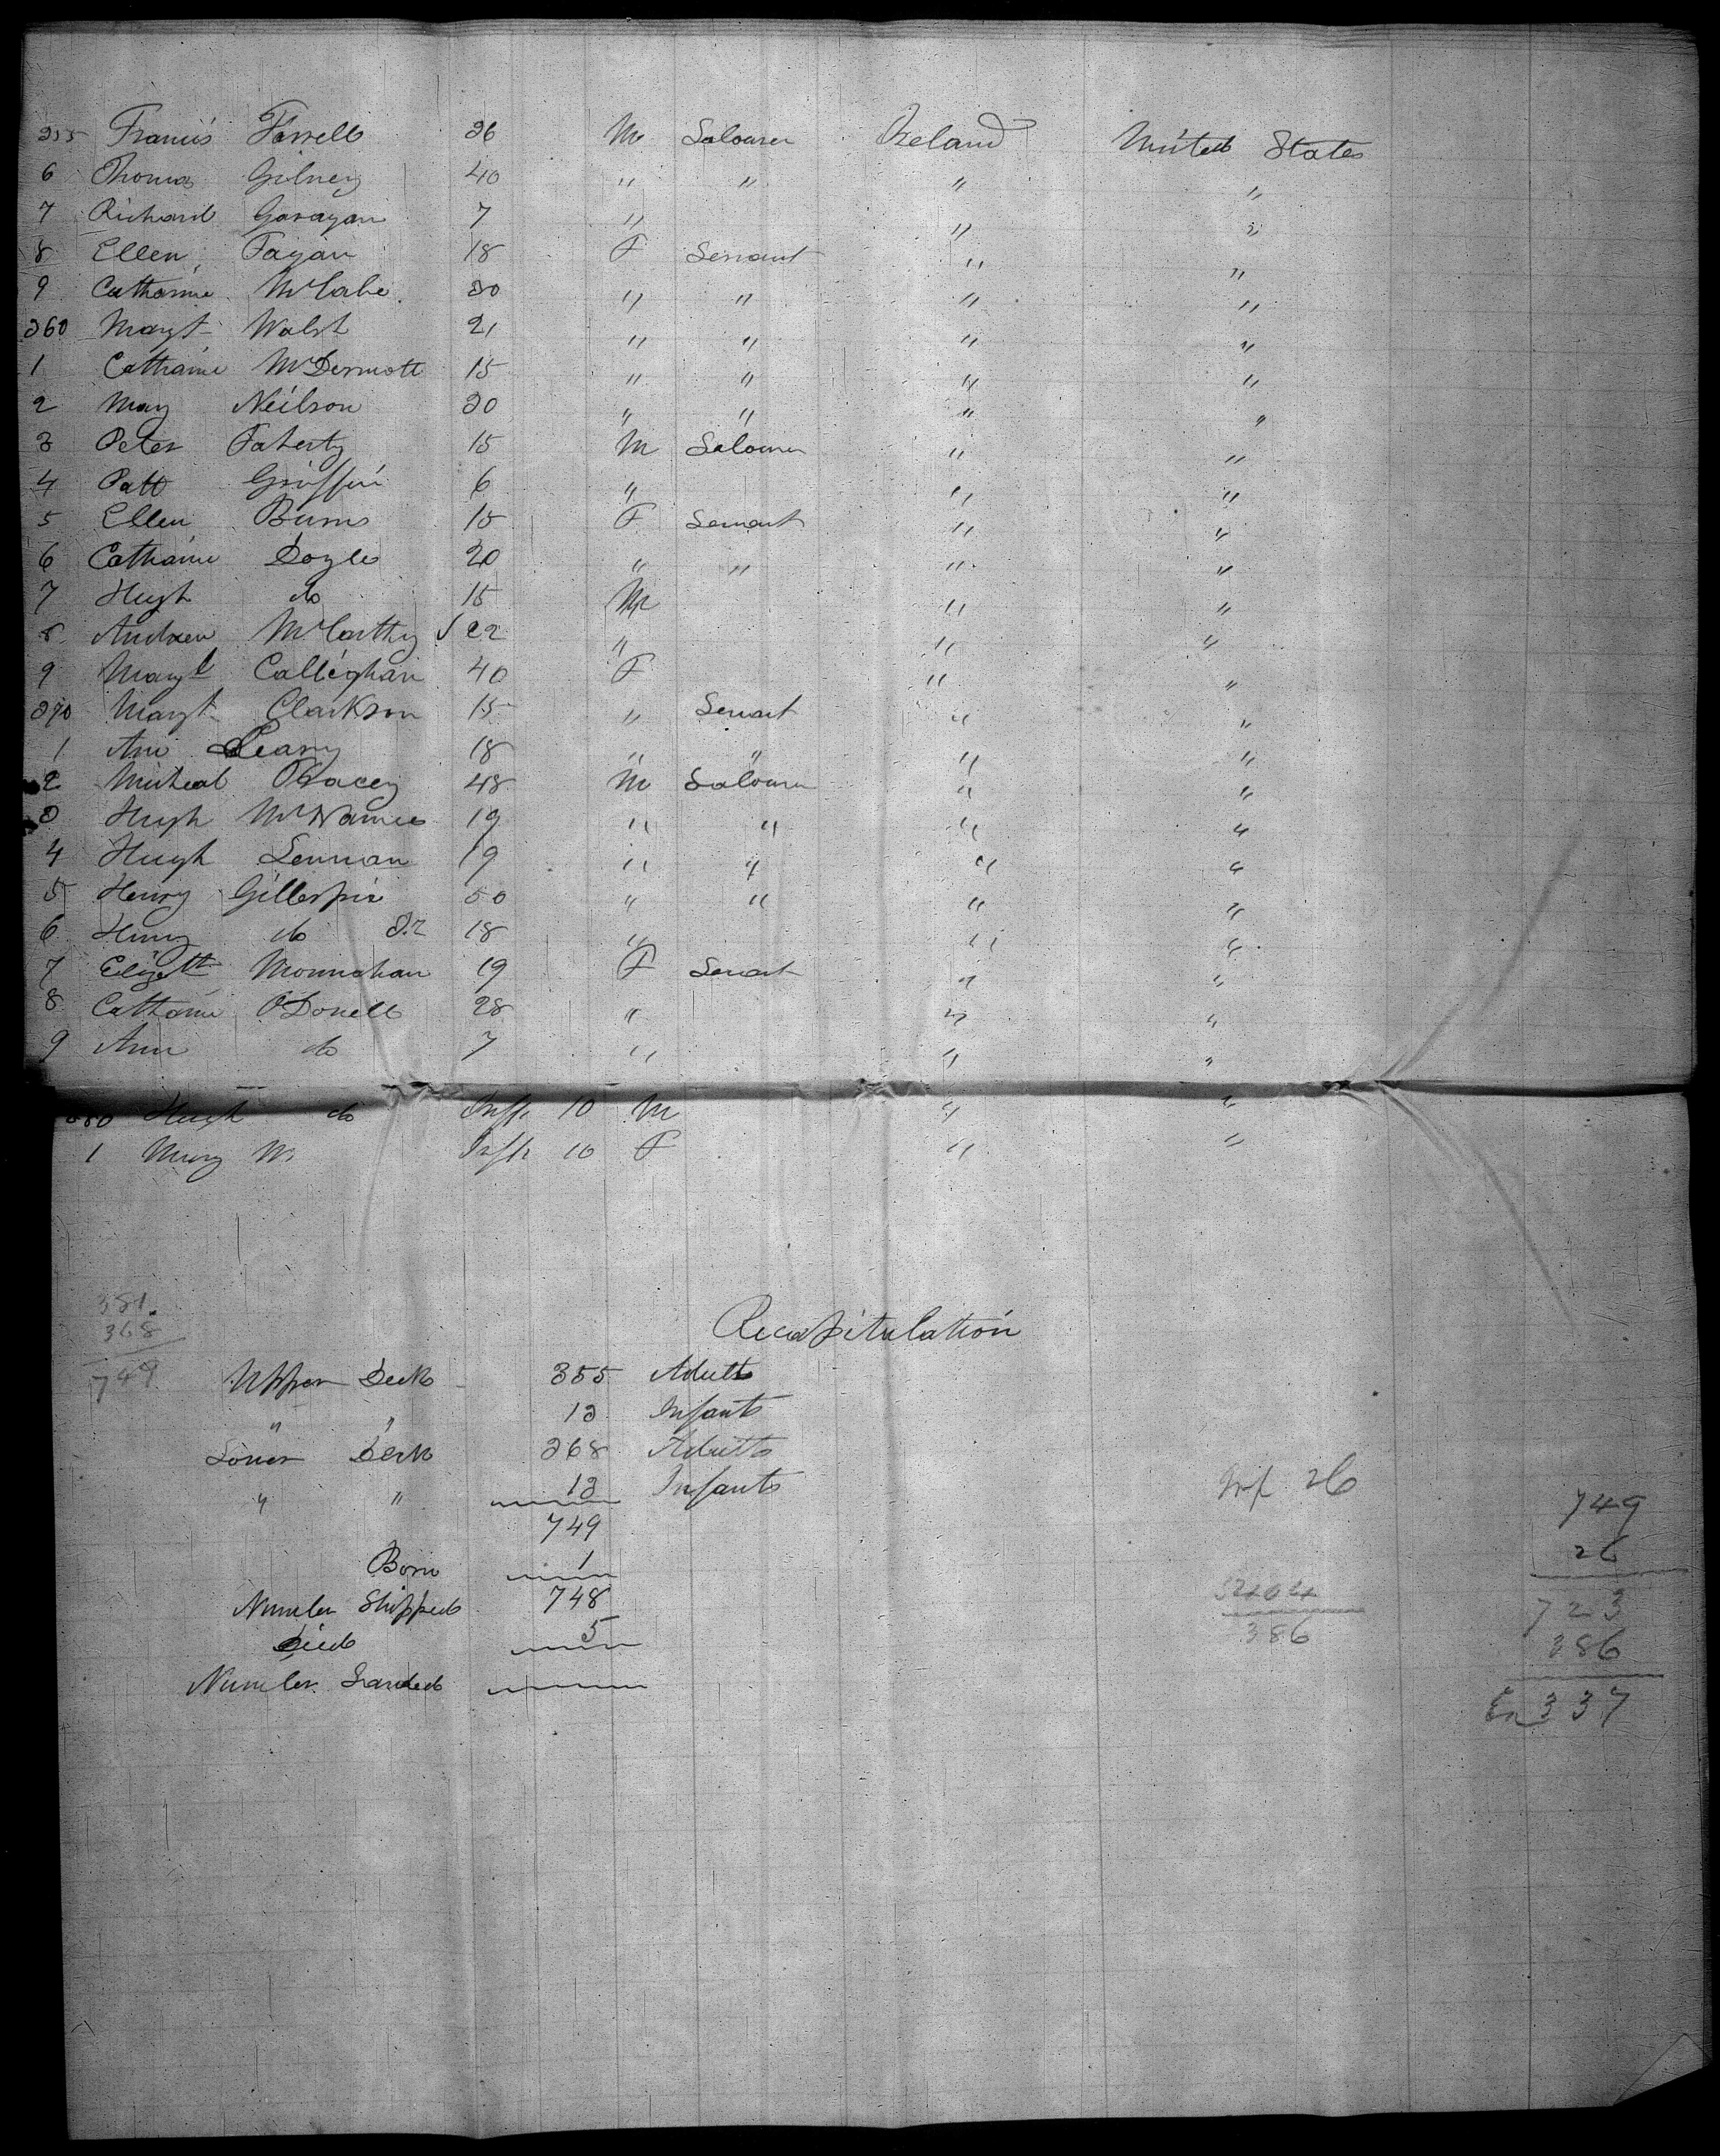 355 Francis Farrell 26 M Labourer Ireland United States
6 Thomas Gilney 40 " " " "
7 Richard Garagan 7 " " "
8 Ellen Fagan 18 F Servant " "
9 Catharine McCabe 30 " " " "
360 Margt Walsh 21 " " " "
1 Catharine McDermott 15 " " " "
2 Mary Neilson 30 " " " "
3 Peter Faherty 15 M Labourer " "
4 Patt Griffin 6 " " "
5 Ellen Burns 15 F Servant " "
6 Catharine Doyle 20 " " " "
7 Hugh do 15 M " "
8 Andrew McCarthy 22 " " "
9 Margt Calleghan 40 F " "
370 Margt Clarkson 15 " Servant " "
1 Ann Leary 18 " " " "
2 Micheal 48 M Labourer " "
3 Hugh McNamee 19 " " " "
4 Hugh Lennan 19 " " " "
5 Henry Gillespie 50 " " " "
6 Henry do Jr 18 " " "
7 Elizath Monnahan 19 F Servant " "
8 Catharine O'Donell 28 " " "
9 Ann do 7 " " "
380 Hugh do Inft 10 M " "
1 Mary Inft 10 F " "
381
368
749
Recapitulation
Upper Deck 355 Adults
" " 13 Infants
Lower Deck 368 Adults
" " 13 Infants
749
Born 1
Number Shipped 748
Died 5
Number Landed
Inf 26
386
749
26
723
386
337